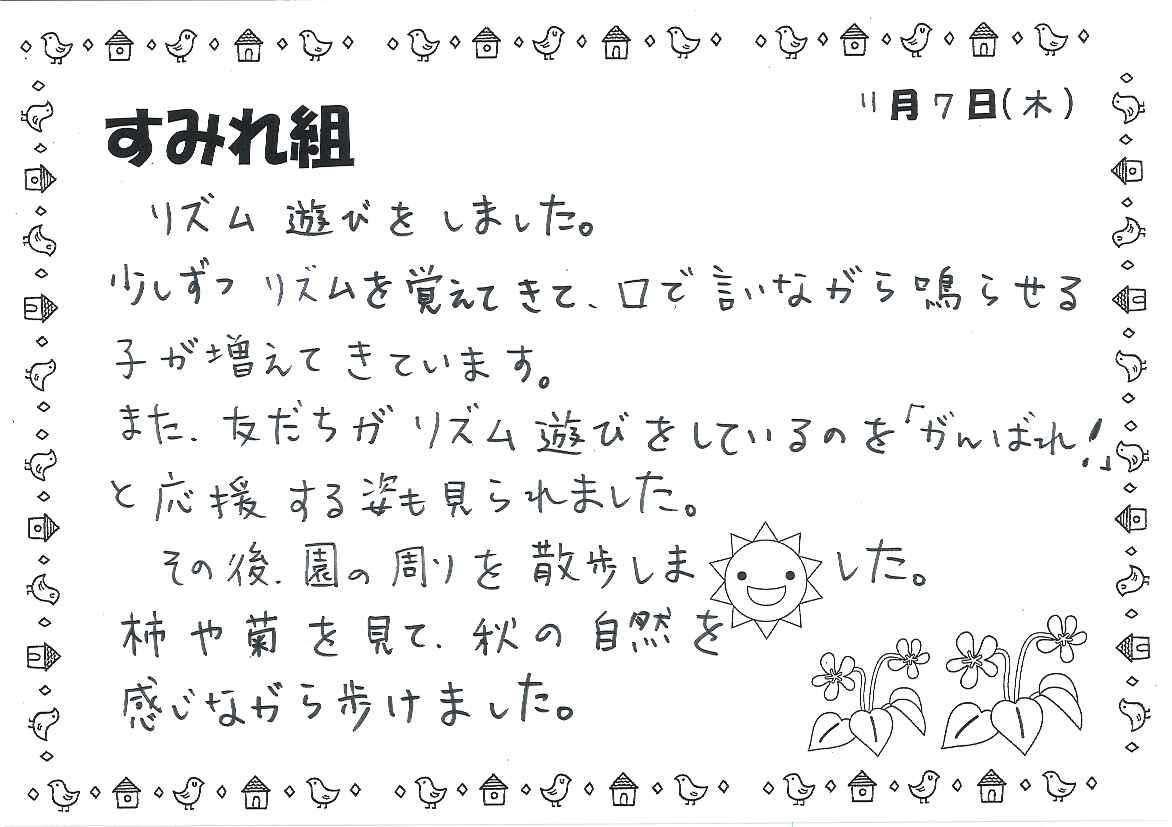 11月7日(木)
すみれ組
リズム遊びをしました。
少しずつリズムを覚えてきて、口で言いながら鳴らせる
子が増えてきています。
また、友だちがリズム遊びをしているのを「がんばれ!」
と応援する姿も見られました。
その後、園の周りを散歩しました。
柿や菊を見て、秋の自然を
感じながら歩けました。